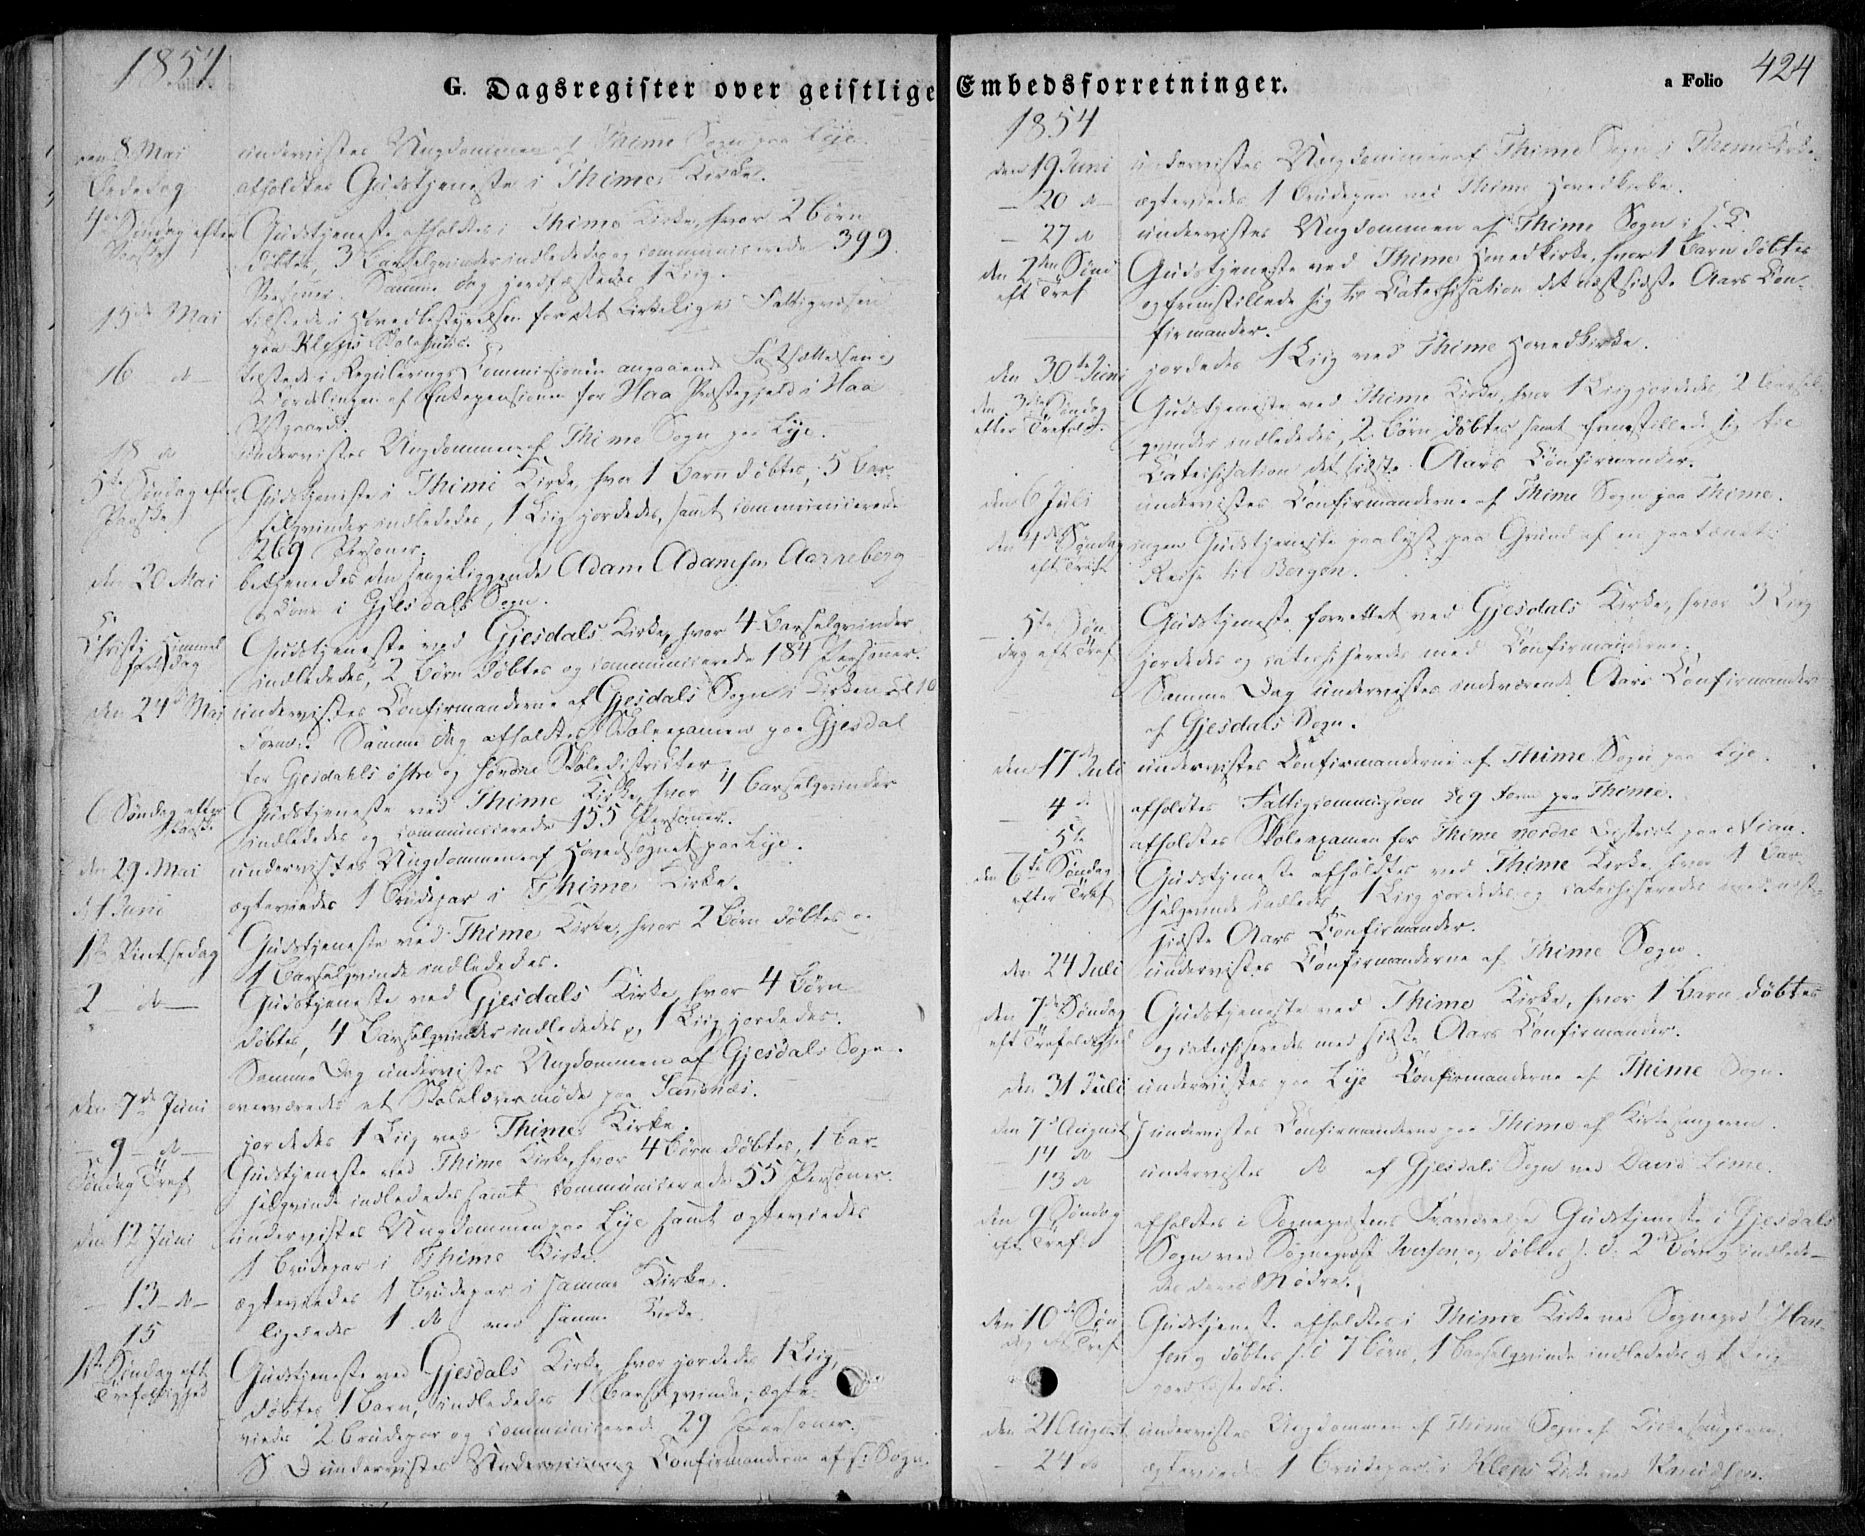 1854
G. Dagsregister over geistlige Embedsforretninger.
a Folio 424
den 8 Mai undervistes Ungdommen af Thime Sogn paa Lye.
Bededag afholdtes Gudstjeneste i Thime Kirke.
4de Søndag efter Paaske Gudstjeneste afholdtes i Thime Kirke, hvor 2 Børn
døbtes, 3 Barselqvinder indlededes og communicerede 399
Personer. Samme Dag jordfæstedes 1 Liig.
15de Mai tilstede i Hovedbestyrelsen for det kirkelige Fattigvæsen
paa Klepps Skolehuus.
16 do tilstede i Regulerings Commissionen angaaende Fastsættelsen og
Fordelingen af Enkepensionen for Haa Præstegjeld i Haa
Præstgaard.
18 do undervistes Ungdommen af Thime Sogn paa Lye.
5te Søndag efter Paaske Gudstjeneste i Thime Kirke, hvor 1 Barn døbtes, 5 Bar-
selqvinder indlededes, 1 Liig jordedes, samt communicerede
269 Personer.
den 20 Mai betjenedes den sengeliggende Adam Adamsen Aarreberg
Kone i Gjesdals Sogn.
Christi Himmelfartsdag Gudstjeneste ved Gjesdals Kirke, hvor 4 Barselqvinder
indlededes, 2 Børn døbtes og communicerede 184 Personer.
den 24de Mai undervistes Confirmanderne af Gjesdals Sogn i Kirken Kl 10
Form. Samme Dag afholdtes Skoleexamen paa Gjesdal
for Gjesdahls østre og søndre Skoledistricter
6 Søndag efter Paaske Gudstjeneste ved Thime Kirke, hvor 4 Barselqvinder
indlededes og communicerede 155 Personer.
den 29 Mai undervistes Ungdommen af Hovedsognet paa Lye.
d. 1 Juni ægteviedes 1 Brudepar i Thime Kirke.
1ste Pintsedag Gudstjeneste ved Thime Kirke, hvor 2 Børn døbtes og
1 Barselqvinde indlededes.
2 do Gudstjeneste ved Gjesdals Kirke, hvor 4 Børn
døbtes, 4 Barselqvinder indlededes og 1 Liig jordedes.
Samme Dag undervistes Ungdommen af Gjesdals Sogn.
den 7de Juni overværedes et Skolelærermøde paa Sandnæs.
9 do jordedes 1 Liig ved Thime Kirke.
Søndag Tref Gudstjeneste ved Thime Kirke, hvor 4 Børn døbtes, 1 Bar-
selqvinde indlededes samt communicerede 55 Personer.
den 12 Juni undervistes Ungdommen paa Lye samt ægteviedes
1 Brudepar i Thime Kirke.
13 do ægteviedes 1 Brudepar i samme Kirke.
15 ligeledes 1 do ved samme Kirke.
1ste Søndag eft Trefoldighed Gudstjeneste ved Gjesdals Kirke, hvor jordedes 1 Liig,
døbtes 1 Barn, indlededes 1 Barselqvinde, ægte-
viedes 2 Brudepar og communicerede 29 Personer.
S D undervistes Confirmanderne af s: Sogn.
1854
den 19 Juni undervistes Ungdommen af Thime Sogn i Thime Kirke.
20 do ægteviedes 1 Brudepar ved Thime Hovedkirke.
27 do undervistes Ungdommen af Thime Sogn i s. K.
den 2den Sønd eft Tref Gudstjeneste ved Thime Hovedkirke, hvor 1 Barn døbtes
og fremstillede sig til Catechisation det næstsidste Aars Con-
firmander.
den 30te Juni jordedes 1 Liig ved Thime Hovedkirke.
den 3die Søndag efter Trefold. Gudstjeneste ved Thime Kirke, hvor 1 Liig jordedes, 2 Barsel-
qvinder indlededes, 2 Børn døbtes samt fremstillede sig til
Catechisation det sidste Aars Confirmander.
den 6 Juli undervistes Confirmanderne af Thime Sogn paa Thime.
den 4de Søndag eft Tref ingen Gudstjeneste paalyst paa Grund af en paatænkt
Reise til Bergen.
5te Søndag eft Tref Gudstjeneste forrettet ved Gjesdals Kirke, hvor 3 Liig
jordedes og catechiseredes med Confirmanderne.
Samme Dag undervistes indeværende Aars Confirmander
af Gjesdals Sogn.
den 17de Juli undervistes Confirmanderne af Thime Sogn paa Lye.
4de afholdtes Fattigcommission Kl 9 Form paa Thime.
5te afholdtes Skoleexamen for Thime nordre District paa Njaa.
den 6te Søndag efter Tref Gudstjeneste afholdtes ved Thime Kirke, hvor 1 Bar-
selqvinde indlededes, 1 Liig jordedes og catechiseredes med næst-
sidste Aars Confirmander.
den 24 Juli undervistes Confirmanderne af Thime Sogn.
den 7de Søndag eft Trefoldighed Gudstjeneste ved Thime Kirke, hvor 1 Barn døbtes
og catechiseredes med sidste Aars Confirmander.
den 31 Juli undervistes paa Lye Confirmanderne af Thime Sogn.
den 7de August undervistes Confirmanderne paa Thime af Kirkesangeren.
14 do
13 do undervistes do af Gjesdals Sogn ved David Lime.
den 9 Søndag eft Tref afholdtes i Sognepræstens Fraværelse Gudstjeneste i Gjesdals
Sogn ved Sognepræst Iversen og døbtes s. d. 2 Børn og indlede-
des deres Mødre.
den 10de Søndag eft Tref Gudstjeneste afholdtes i Thime Kirke ved Sognepræst Han-
sen og døbtes s. d. 7 Børn, 1 Barselqvinde indlededes og 1 Liig
jordfæstedes.
den 21 August undervistes Ungdommen af Thime Sogn af Kirkesangeren.
24 do ægteviedes 1 Brudepar i Kleps Kirke ved Knudsen.